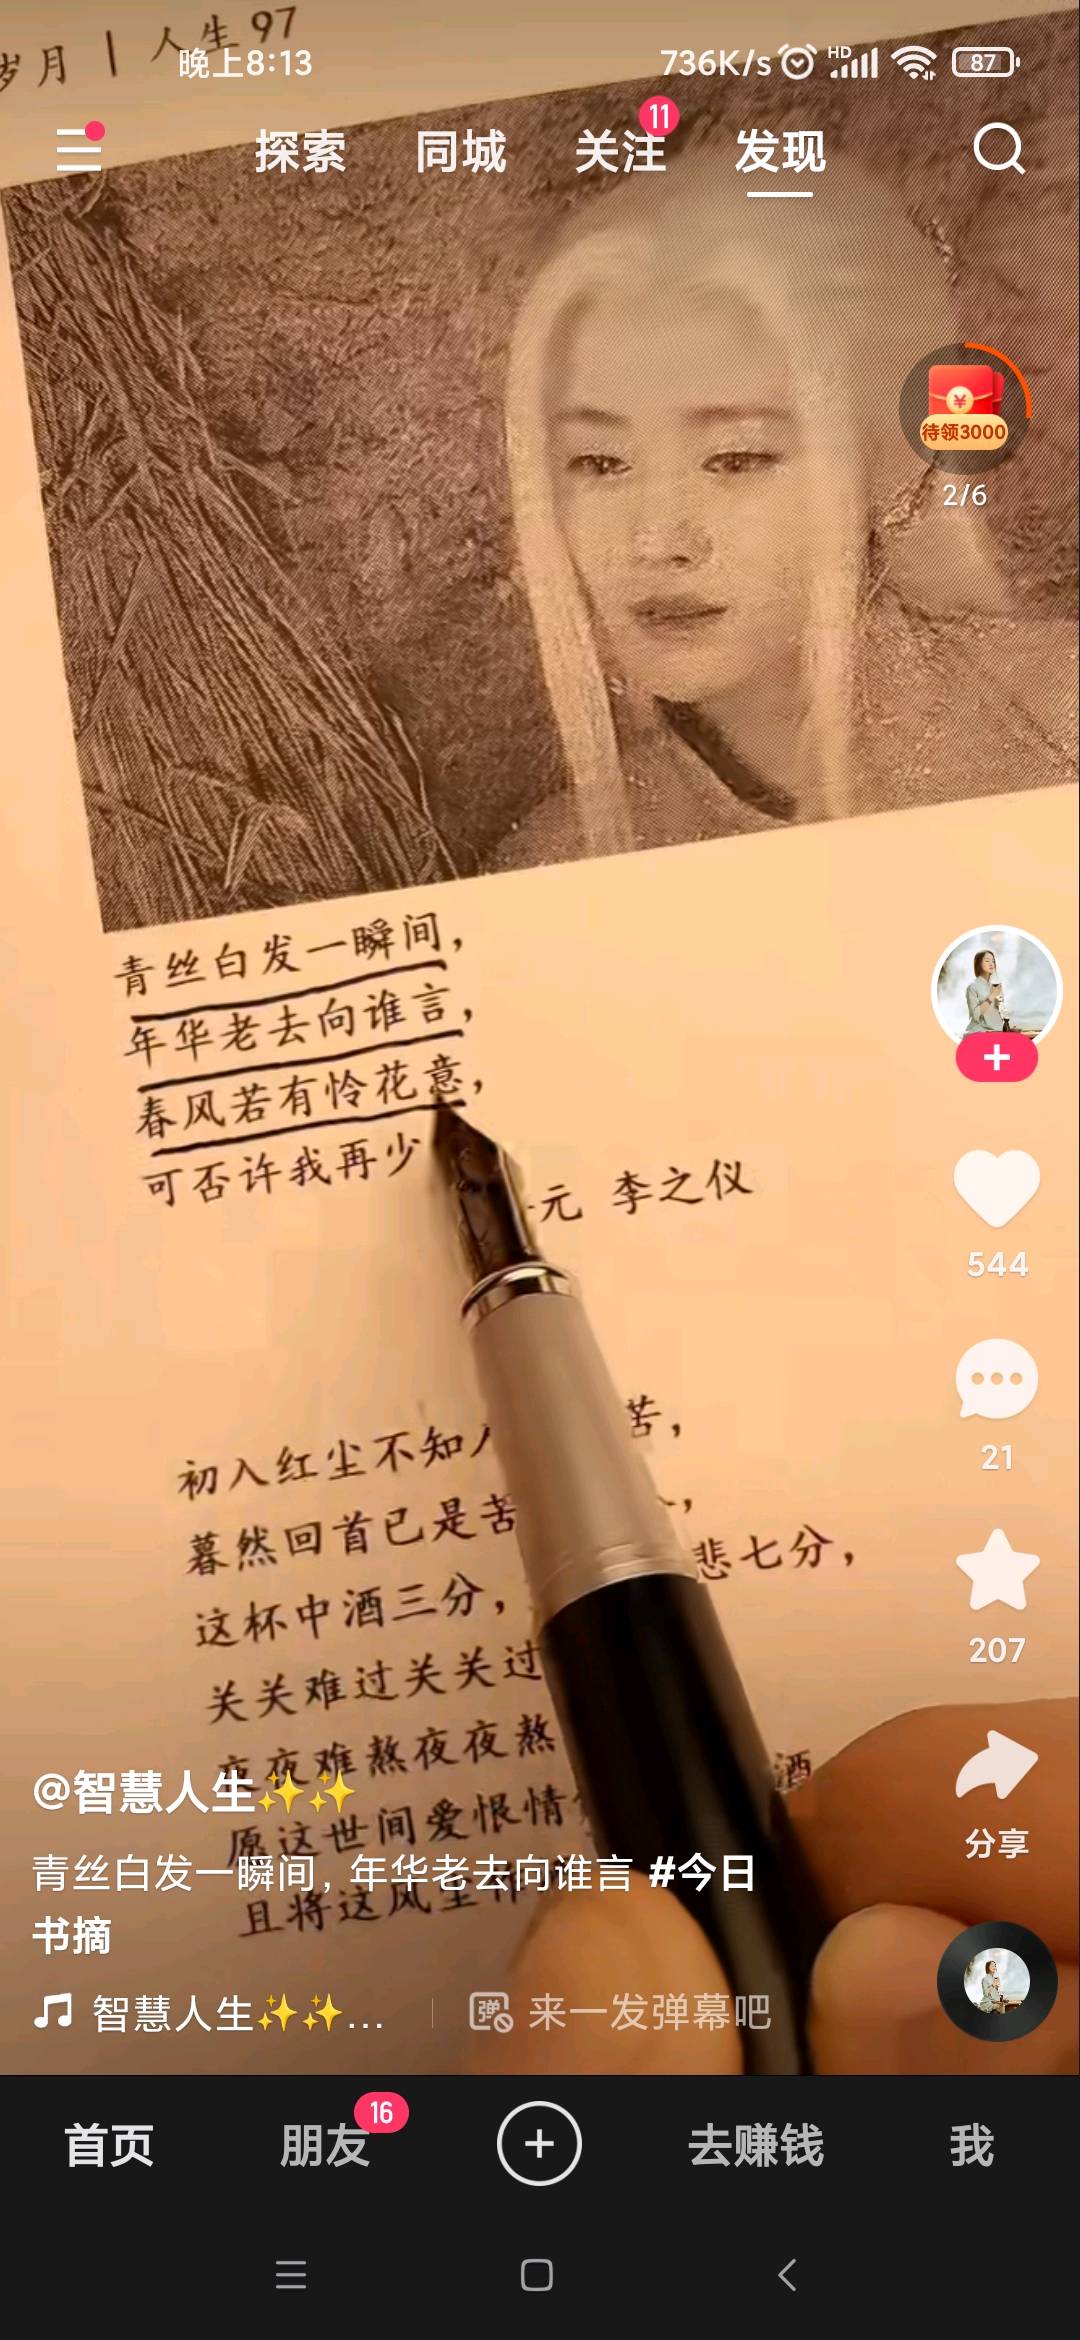 岁月 | 人生 97
晚上8:13
736K/s
HD
87
探索
同城
关注
11
发现
待领3000
2/6
青丝白发一瞬间，
年华老去向谁言，
春风若有怜花意，
可否许我再少
元 李之仪
544
21
初入红尘不知 苦，
暮然回首已是苦 ，
这杯中酒三分， 悲七分，
207
关关难过关关过
夜夜难熬夜夜熬 酒
@智慧人生✨✨
愿这世间爱恨情
分享
青丝白发一瞬间，年华老去向谁言 #今日
书摘
且将这风尘
智慧人生✨✨...
弹
来一发弹幕吧
首页
朋友
16
去赚钱
我